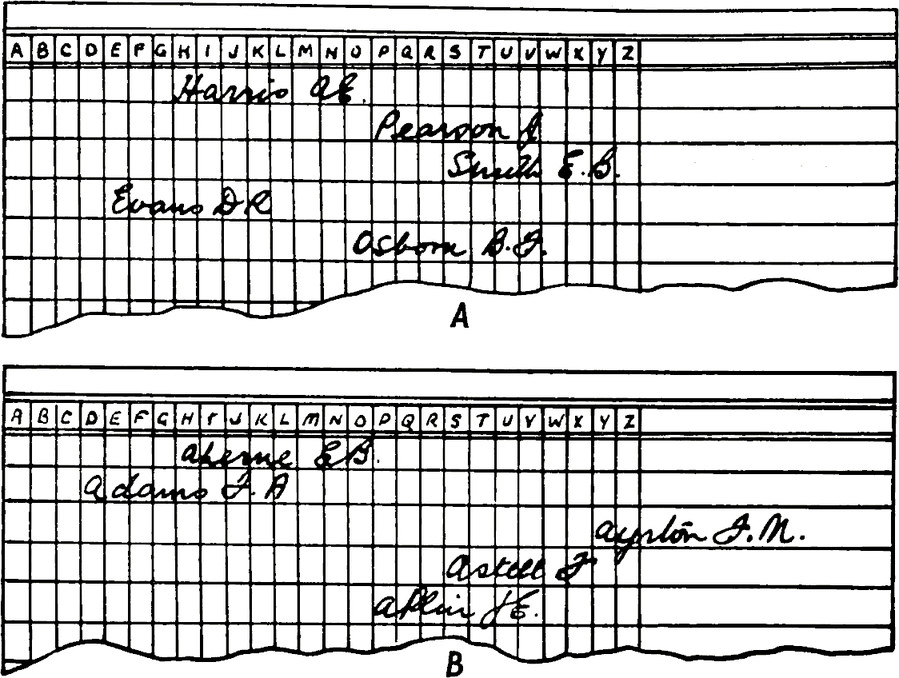 A B C D E F G H I J K L M N O P Q R S T U V W X Y Z
Harris A E.
Pearson J
Smith E. B.
Evans D R
Osborn B. F.
A
A B C D E F G H I J K L M N O P Q R S T U V W X Y Z
Aherne E B.
Adams F. A
Ayrton F. M.
Astell F
Aplin J E.
B